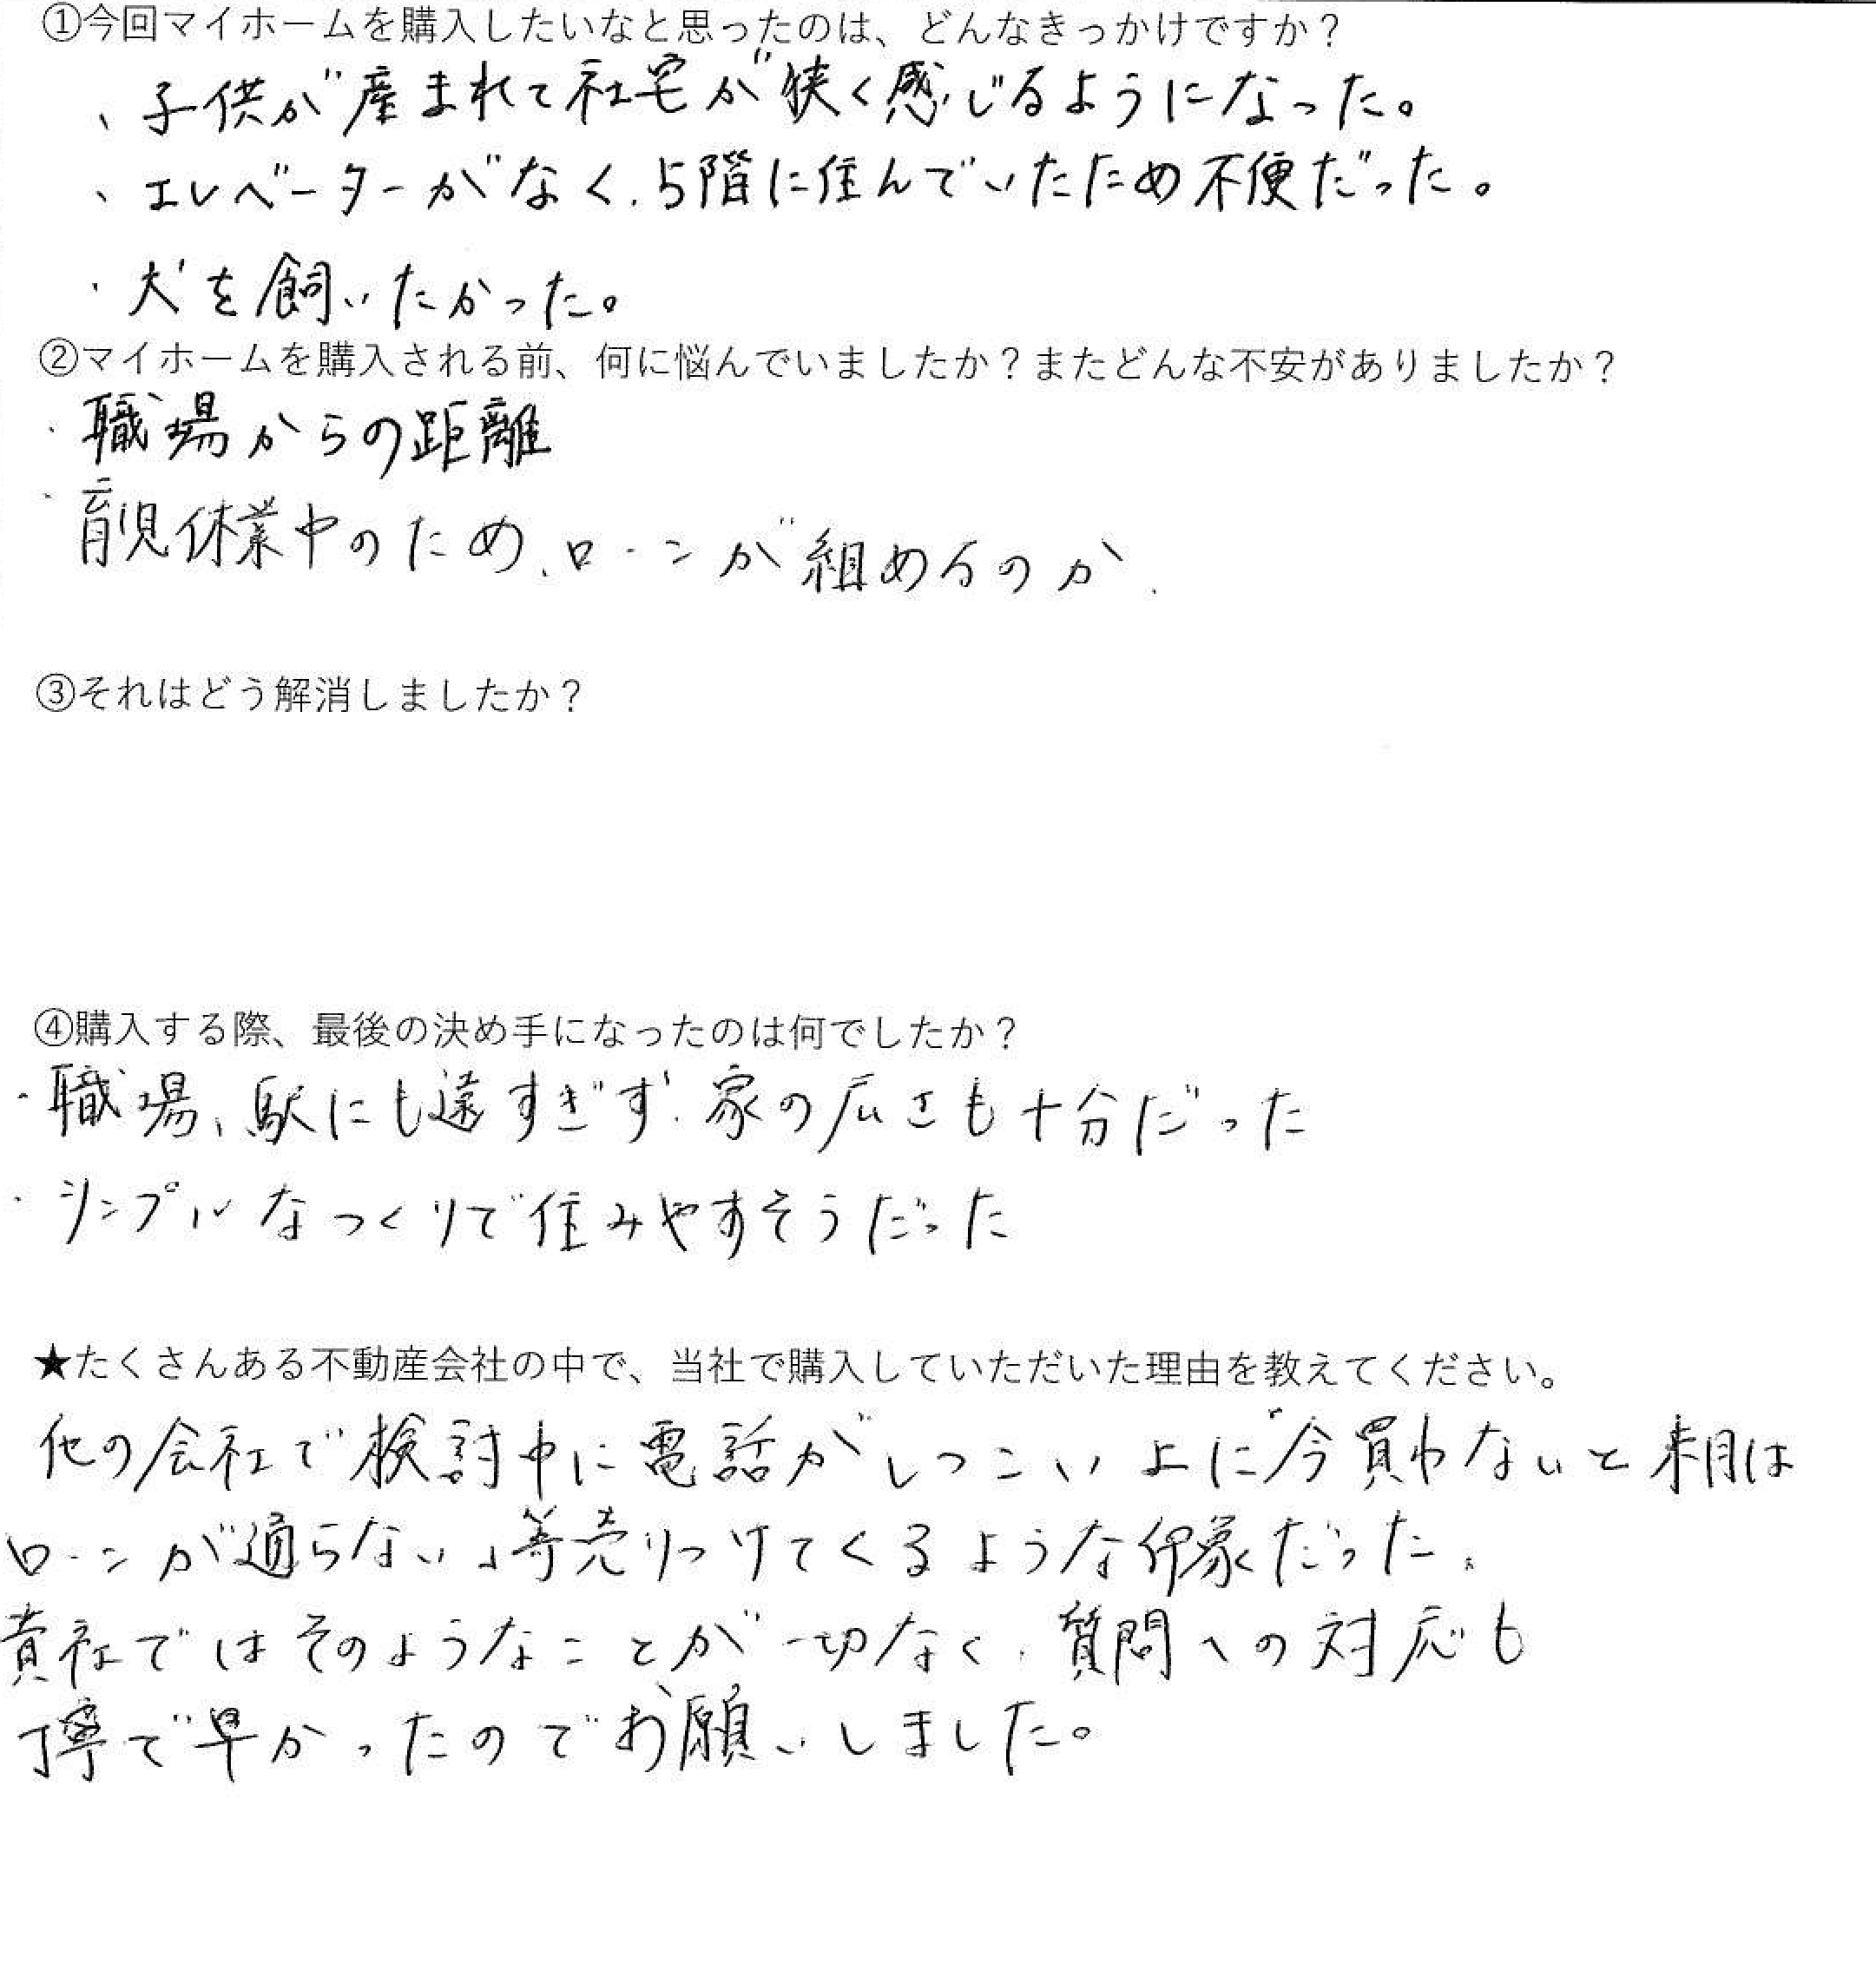 ①今回マイホームを購入したいなと思ったのは、どんなきっかけですか？
、子供が産まれて社宅が狭く感じるようになった。
、エレベーターがなく、5階に住んでいたため不便だった。
・犬を飼いたかった。
②マイホームを購入される前、何に悩んでいましたか？またどんな不安がありましたか？
・職場からの距離
・育児休業中のため、ローンが組めるのか、
③それはどう解消しましたか？
④購入する際、最後の決め手になったのは何でしたか？
・職場、駅にも遠すぎず、家の広さも十分だった
・シンプルなつくりで住みやすそうだった
★たくさんある不動産会社の中で、当社で購入していただいた理由を教えてください。
他の会社で検討中に電話がしつこい上に「今買わないと来月は
ローンが通らない」等売りつけてくるような印象だった。
貴社ではそのようなことが一切なく、質問への対応も
丁寧で早かったのでお願いしました。